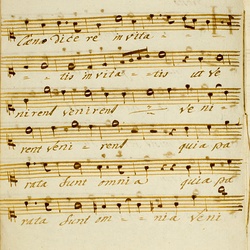 Cæno dice re invita -
- - tio invita - tio ut ve
nirent venirent - ve ni -
rent veni - rent quia pa
rata sunt omnia quia pa
rata sunt om - - nia veni